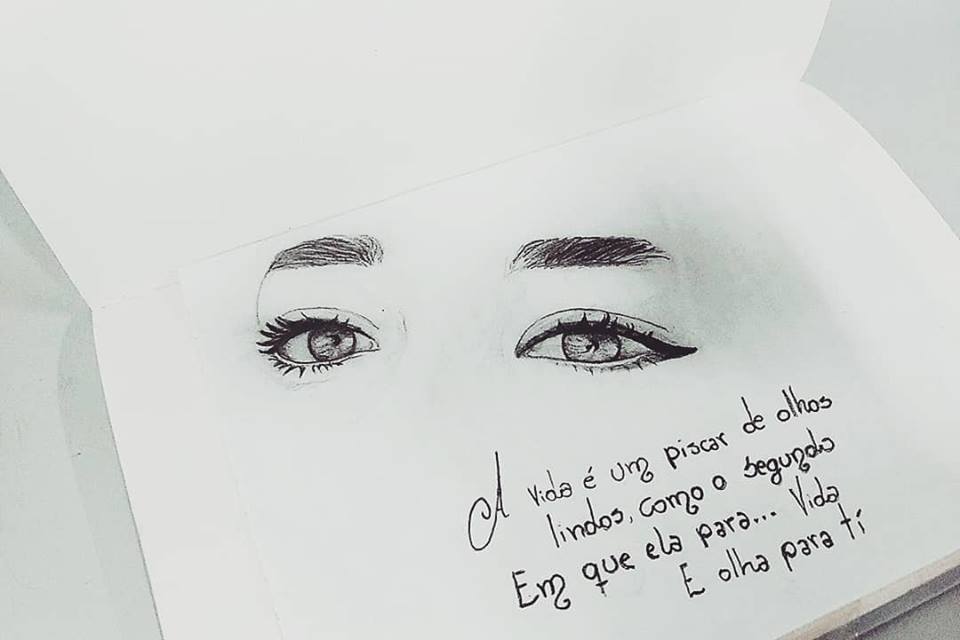 A vida é um piscar de olhos
lindos, como o segundo
Em que ela para... Vida
E olha para tí